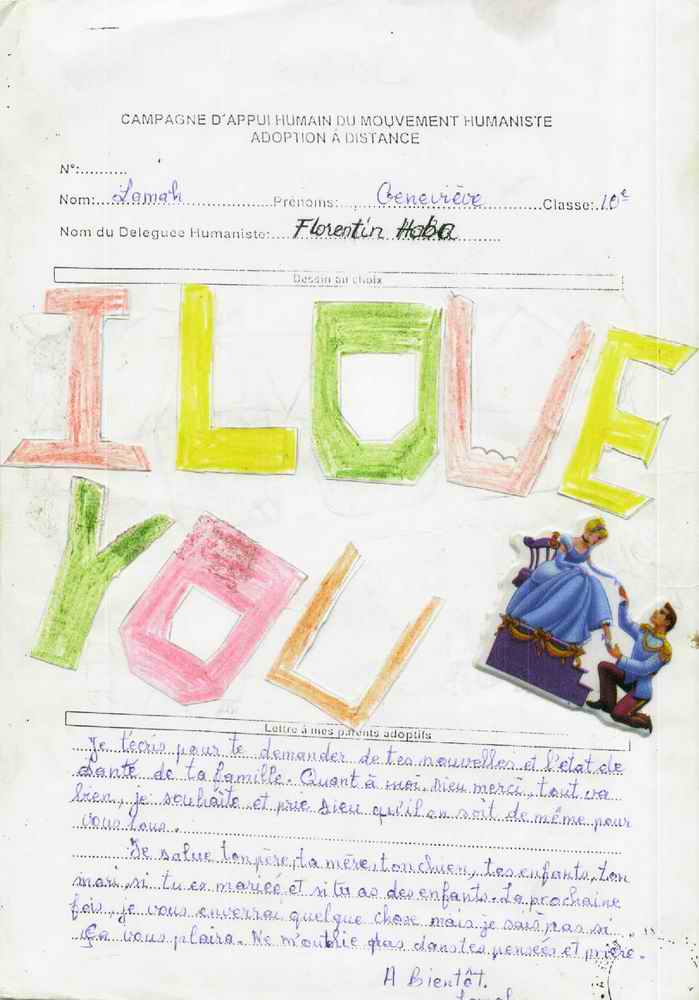 CAMPAGNE D'APPUI HUMAIN DU MOUVEMENT HUMANISTE
ADOPTION À DISTANCE
N°:..........
Nom: Lamah Prénoms: Geneviève Classe: 10e
Nom du Deleguee Humaniste: Florentin Haba
Dessin au choix
I LOVE
YOU
Lettre à mes parents adoptifs
Je t'écris pour te demander de tes nouvelles et l'état de
santé de ta famille. Quant à moi, Dieu merci, tout va
bien, je souhaite et prie Dieu qu'il en soit de même pour
vous tous.
Je salue ton père, ta mère, ton chien, tes enfants, ton
mari, si tu es mariée et si tu as des enfants. La prochaine
fois, je vous enverrai quelque chose mais je sais pas si
ça vous plaira. Ne m'oublie pas dans tes pensées et prière.
A Bientôt.